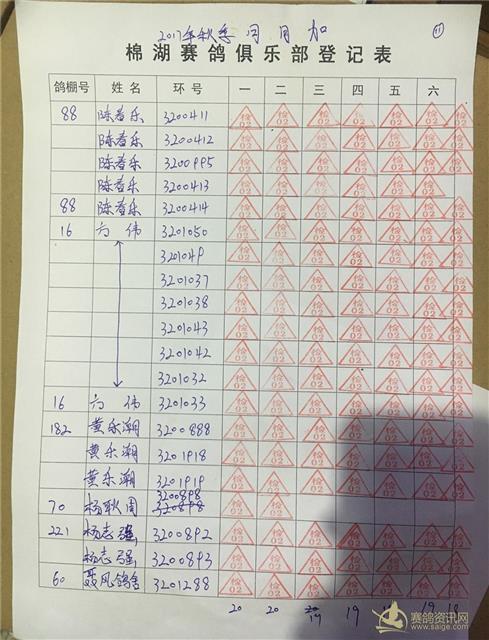 2017年秋季 月月加 11
棉湖赛鸽俱乐部登记表
鸽棚号 姓名 环号 一 二 三 四 五 六
88 陈春乐 3200411 检02 检02 检02 检02 检02 检02 检02
陈春乐 3200412 检02 检02 检02 检02 检02 检02 检02
陈春乐 3200995 检02 检02 检02 检02 检02 检02 检02
陈春乐 3200413 检02 检02 检02 检02 检02 检02
88 陈春乐 3200414 检02 检02 检02 检02 检02 检02 检02
16 方伟 3201050 检02 检02 检02 检02 检02 检02 检02
3201049 检02 检02 检02 检02 检02 检02 检02
3201037 检02 检02 检02 检02 检02 检02 检02
3201038 检02 检02 检02 检02 检02 检02 检02
3201043 检02 检02 检02 检02 检02 检02 检02
3201042 检02 检02 检02 检02 检02 检02 检02
3201032 检02 检02 检02 检02 检02 检02 检02
16 方伟 3201033 检02 检02 检02 检02 检02 检02 检02
182 黄乐潮 3200888 检02 检02 检02 检02 检02 检02 检02
黄乐潮 3201918 检02 检02 检02 检02 检02 检02 检02
黄乐潮 3201919 检02 检02 检02 检02 检02 检02 检02
3200898
70 杨耿周 检02 检02
221 杨志强 3200892 检02 检02 检02 检02 检02 检02 检02
杨志强 3200893 检02 检02 检02 检02 检02 检02 检02
60 聂风鸽舍 3201288 检02 检02 检02 检02 检02 检02 检02
20 20 20 19 19 18
19
赛鸽资讯网
www.saige.com